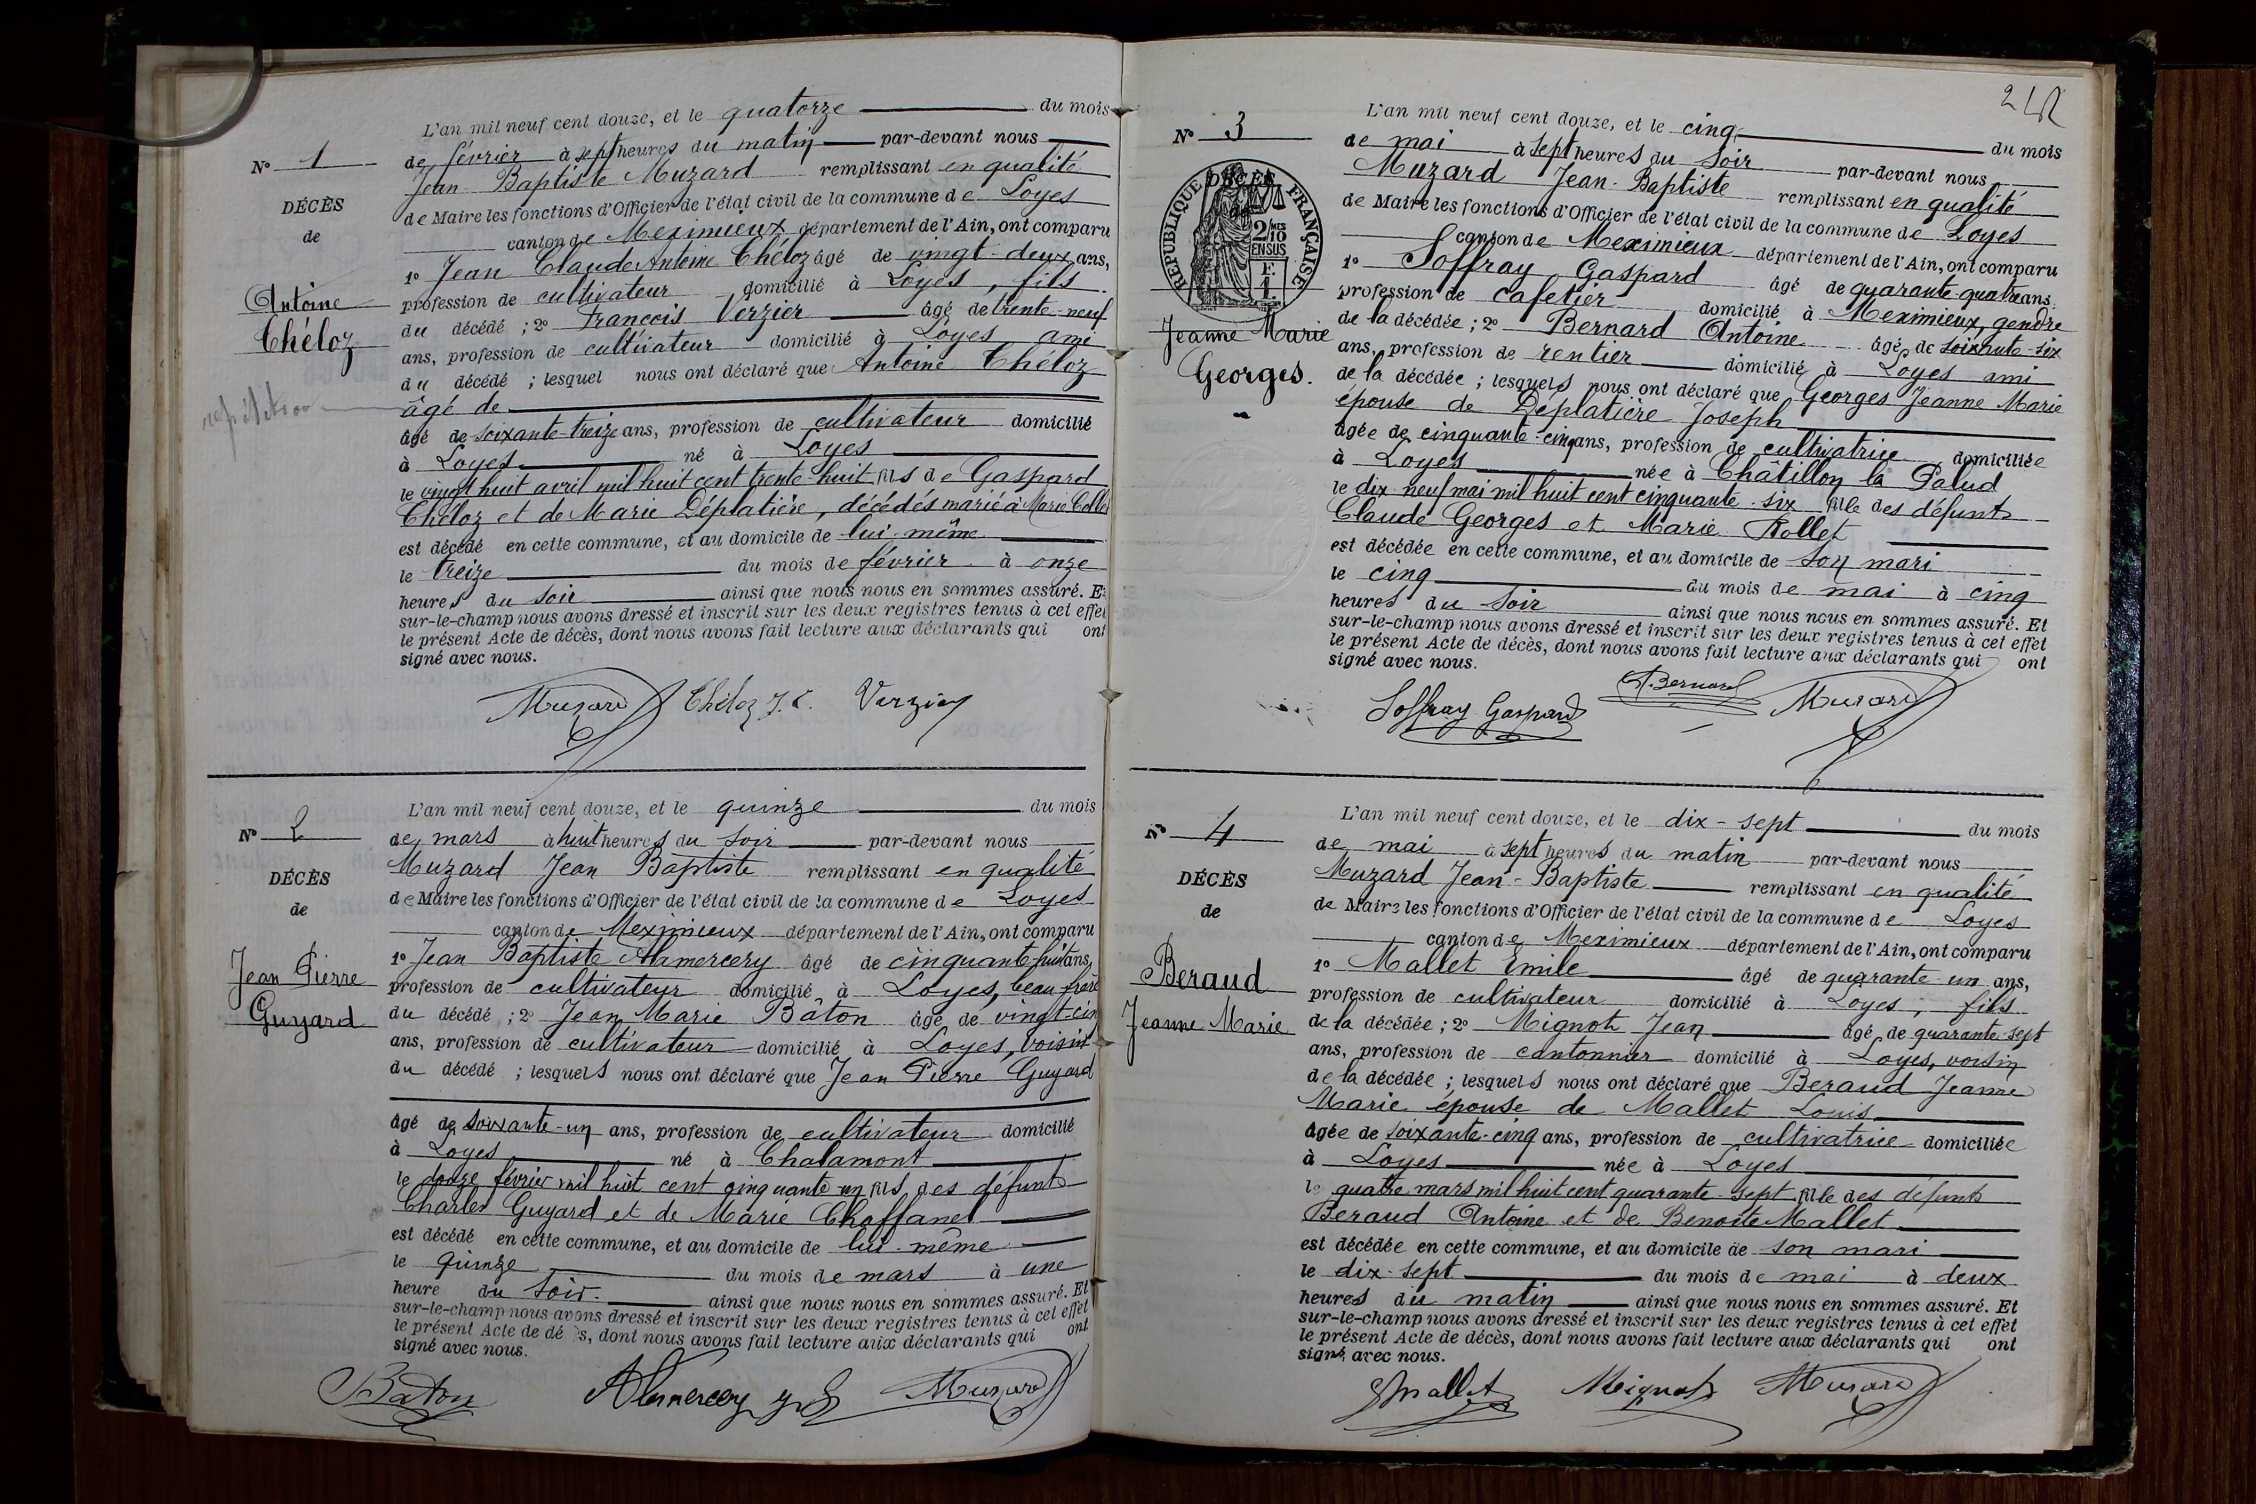 L'an mil neuf cent douze, et le quatorze du mois
N° 1
de février à sept heures du matin par-devant nous
Jean Baptiste Muzard remplissant en qualité
DÉCÈS
de Maire les fonctions d'Officier de l'état civil de la commune de Loyes
de
canton de Meximieux département de l'Ain, ont comparu
1° Jean Claude Antoine Chéloz âgé de vingt-deux ans,
Antoine
profession de cultivateur domicilié à Loyes, fils
Chéloz
du décédé ; 2° François Verzier âgé de trente-neuf
ans, profession de cultivateur domicilié à Loyes ami
du décédé ; lesquel nous ont déclaré que Antoine Chéloz
répétition
âgé de
âgé de soixante-treize ans, profession de cultivateur domicilié
à Loyes né à Loyes
le vingt huit avril mil huit cent trente-huit fils de Gaspard
Chéloz et de Marie Déplatière, décédés marié à Marie
est décédé en cette commune, et au domicile de lui-même
le treize du mois de février à onze
heures du soir ainsi que nous nous en sommes assuré. Et
sur-le-champ nous avons dressé et inscrit sur les deux registres tenus à cet effet
le présent Acte de décès, dont nous avons fait lecture aux déclarants qui ont
signé avec nous.
Muzard Chéloz J. C. Verzier
L'an mil neuf cent douze, et le quinze du mois
N° 2
de mars à huit heures du soir par-devant nous
Muzard Jean Baptiste remplissant en qualité
DÉCÈS
de Maire les fonctions d'Officier de l'état civil de la commune de Loyes
de
canton de Meximieux département de l'Ain, ont comparu
1° Jean Baptiste Alamercery âgé de cinquante huit ans,
Jean Pierre
profession de cultivateur domicilié à Loyes, beau frère
Guyard
du décédé ; 2° Jean Marie Bâton âgé de vingt-cinq
ans, profession de cultivateur domicilié à Loyes, voisin
du décédé ; lesquels nous ont déclaré que Jean Pierre Guyard
âgé de soixante-un ans, profession de cultivateur domicilié
à Loyes né à Chalamont
le douze février mil huit cent cinquante un fils des défunts
Charles Guyard et de Marie Choffanel
est décédé en cette commune, et au domicile de lui-même
le quinze du mois de mars à une
heure du soir. ainsi que nous nous en sommes assuré. Et
sur-le-champ nous avons dressé et inscrit sur les deux registres tenus à cet effet
le présent Acte de dé s, dont nous avons fait lecture aux déclarants qui ont
signé avec nous.
Baton Alamercery Muzard
L'an mil neuf cent douze, et le cinq du mois
N° 3
de mai à sept heures du soir par-devant nous
Muzard Jean-Baptiste remplissant en qualité
RÉPUBLIQUE FRANÇAISE
DÉCÈS
de
2/10 MES
EN SUS
F.
1.
de Maire les fonctions d'Officier de l'état civil de la commune de Loyes
canton de Meximieux département de l'Ain, ont comparu
1° Soffray Gaspard âgé de quarante-quatre ans
profession de cafetier domicilié à Meximieux, gendre
Jeanne Marie
de la décédée ; 2° Bernard Antoine âgé de soixante-six
ans, profession de rentier domicilié à Loyes ami
Georges.
de la décédée ; lesquels nous ont déclaré que Georges Jeanne Marie
épouse de Déplatière Joseph
âgée de cinquante-cinq ans, profession de cultivatrice domiciliée
à Loyes née à Châtillon la Palud
le dix neuf mai mil huit cent cinquante-six fille des défunts
Claude Georges et Marie Rollet
est décédée en cette commune, et au domicile de son mari
le cinq du mois de mai à cinq
heures du soir ainsi que nous nous en sommes assuré. Et
sur-le-champ nous avons dressé et inscrit sur les deux registres tenus à cet effet
le présent Acte de décès, dont nous avons fait lecture aux déclarants qui ont
signé avec nous.
Soffray Gaspard A. Bernard Muzard
L'an mil neuf cent douze, et le dix-sept du mois
N° 4
de mai à sept heures du matin par-devant nous
Muzard Jean-Baptiste remplissant en qualité
DÉCÈS
de Maire les fonctions d'Officier de l'état civil de la commune de Loyes
de
canton de Meximieux département de l'Ain, ont comparu
1° Mallet Emile âgé de quarante-un ans,
Beraud
profession de cultivateur domicilié à Loyes, fils
Jeanne Marie
de la décédée ; 2° Mignot Jean âgé de quarante-sept
ans, profession de cantonnier domicilié à Loyes, voisin
de la décédée ; lesquels nous ont déclaré que Beraud Jeanne
Marie épouse de Mallet Louis
âgée de soixante-cinq ans, profession de cultivatrice domiciliée
à Loyes née à Loyes
le quatre mars mil huit cent quarante-sept fille des défunts
Beraud Antoine et de Benoite Mallet
est décédée en cette commune, et au domicile de son mari
le dix-sept du mois de mai à deux
heures du matin ainsi que nous nous en sommes assuré. Et
sur-le-champ nous avons dressé et inscrit sur les deux registres tenus à cet effet
le présent Acte de décès, dont nous avons fait lecture aux déclarants qui ont
signé avec nous.
E Mallet Mignot Muzard